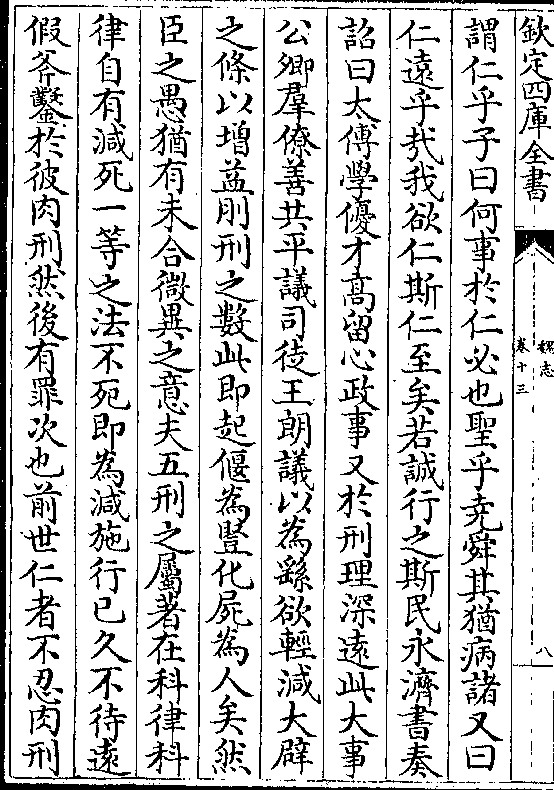 欽定四庫全書
魏志
卷十三
八
謂仁乎子曰何事於仁必也聖乎堯舜其猶病諸又曰
仁遠乎㢤我欲仁斯仁至矣若誠行之斯民永濟書奏
詔曰太傅學優才髙留心政事又於刑理深遠此大事
公卿羣僚善共平議司徒王朗議以為繇欲輕減大辟
之條以增益刖刑之數此即起偃為豎化屍為人矣然
臣之愚猶有未合微異之意夫五刑之屬著在科律科
律自有減死一等之法不死即為減施行已久不待逺
假斧鑿於彼肉刑然後有罪次也前世仁者不忍肉刑